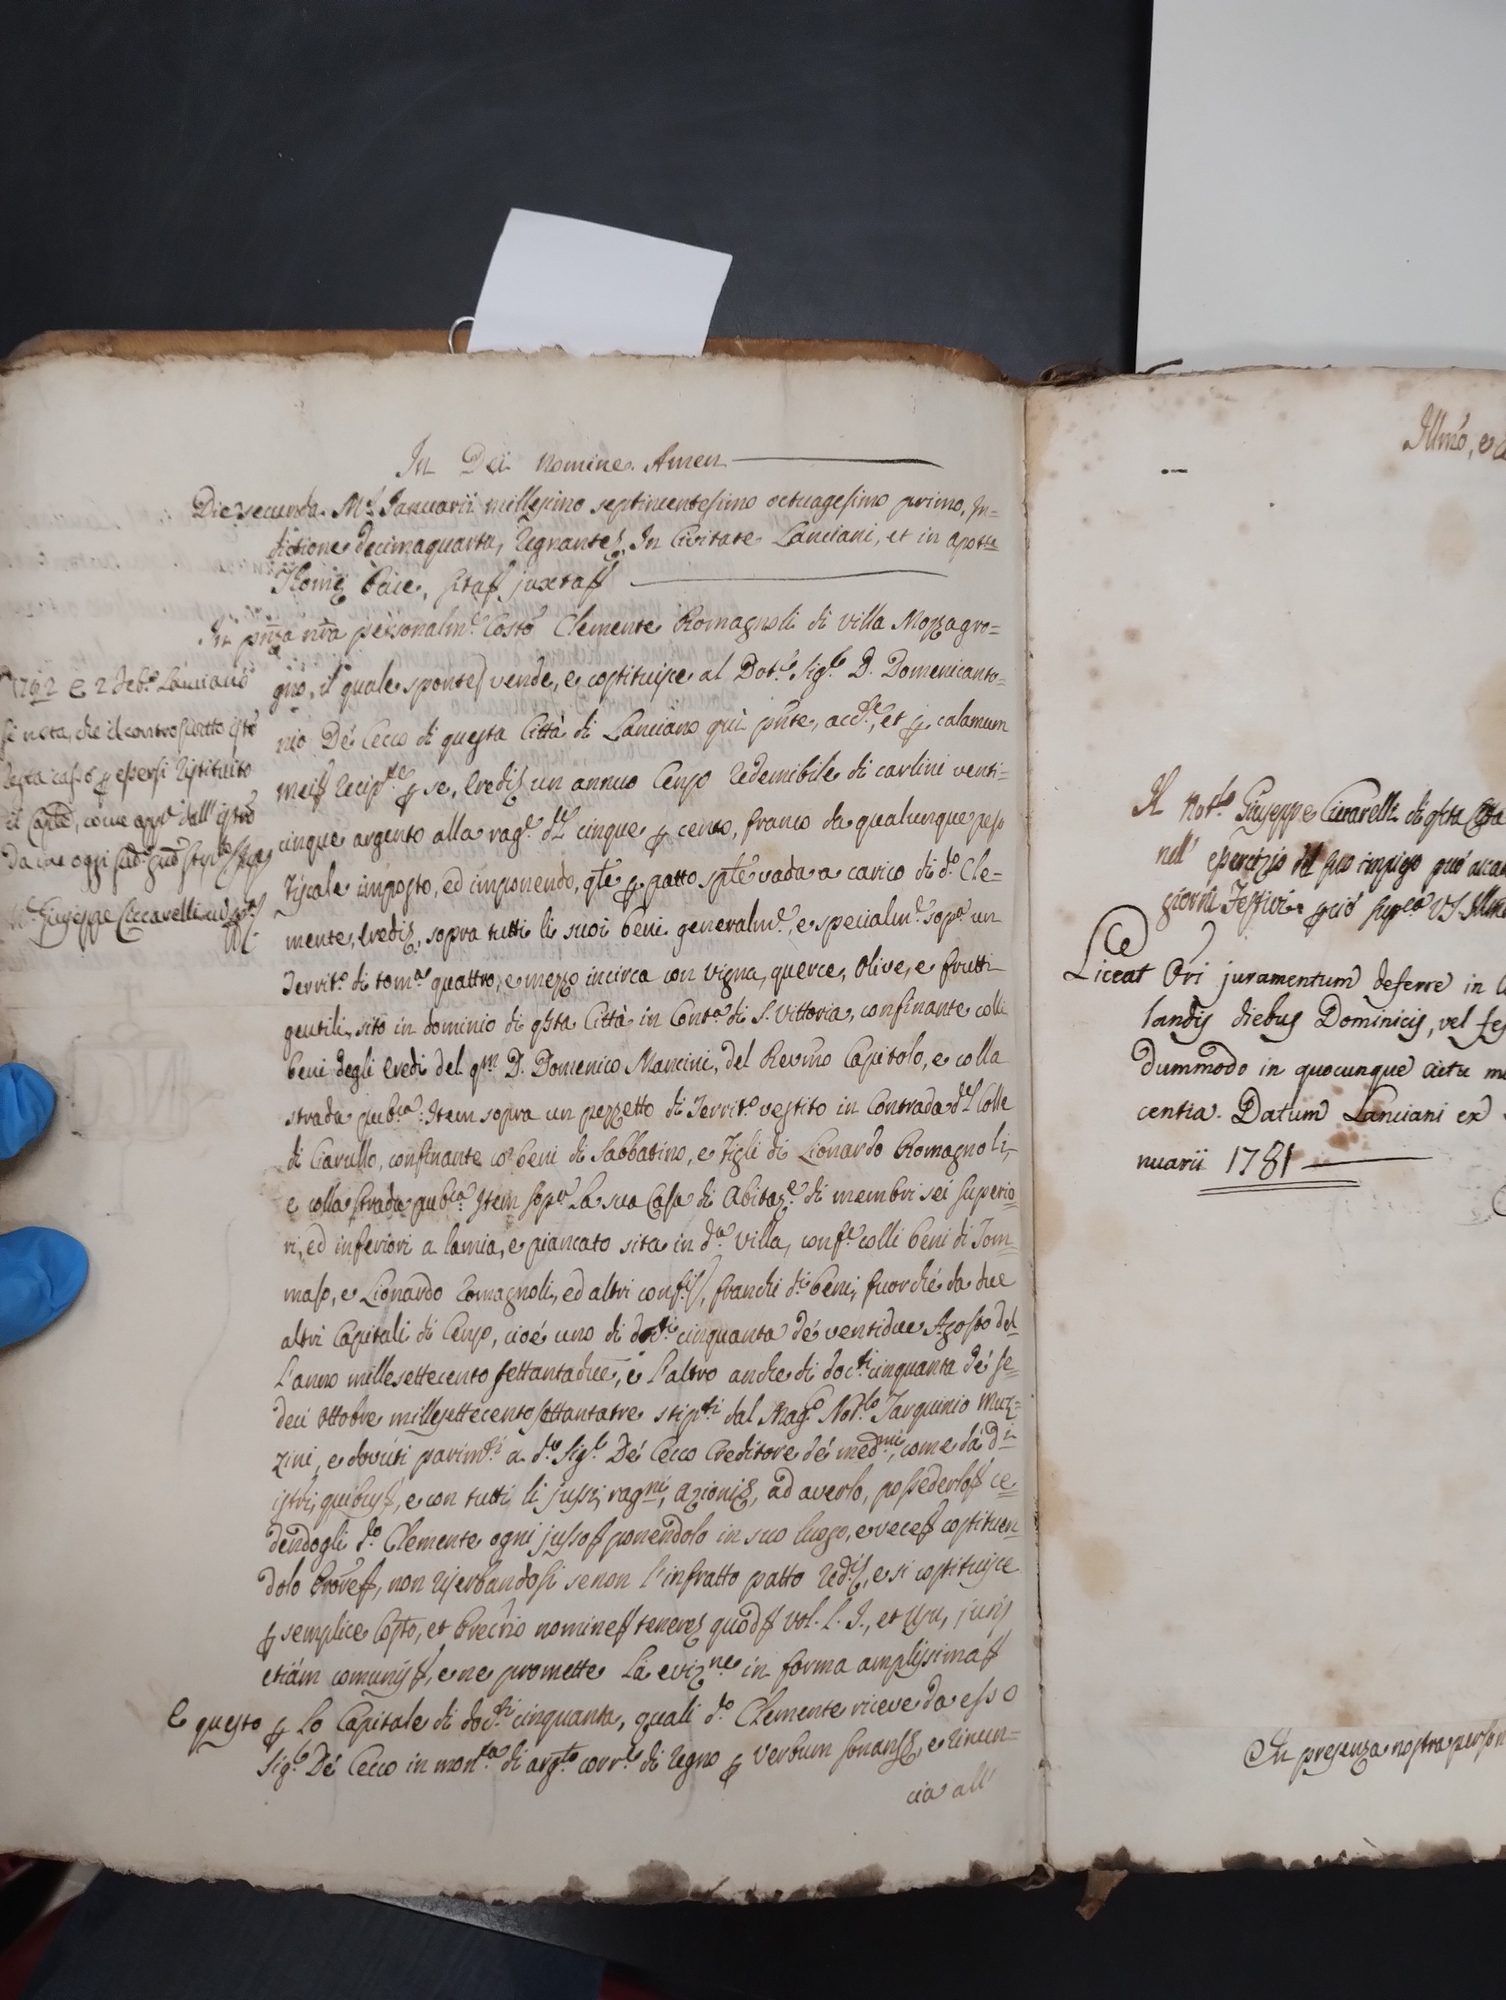 In Dei nomine Amen
Die secunda Ms Januarii millesimo septincentesimo octuagesimo primo, In=
dictione decimaquarta, Regnante In Civitate Lanciani, et in apotca
Thomę Pace, sitas juxtas
In pñza nr̃a personalmte Costo Clemente Romagnoli di Villa Mozzagro=
gno, il quale sponte vende, e costituisce al Dotre Sigre D. Domenicanto=
nio De' Cecco di questa Città di Lanciano quì pñte, accte, et p calamum
meis recipte p se, eredis un annuo Censo redemibile di carlini venti=
cinque argento alla rage del cinque p cento, franco da qualunque peso
Fiscale imposto, ed imponendo, qle p patto splẽ vada a carico di do Cle=
mente, eredis, sopra tutti li suoi beni generalmte e specialmte sopa un
Territo di toma quattro, e mezzo incirca con vigna, querce, olive, e frutti
gentili, sito in dominio di qsta Città in Conta di S. Vittoria, confinante colli
beni degli eredi del qm D. Domenico Mancini, del Revmo Capitolo, e colla
strada pubca: Item sopra un pezzetto di Territo vestito in Contrada del Colle
di Ciarullo, confinante co' beni di Sabbatino, e Figli di Lionardo Romagnoli,
e colla strada pubca Item sopa la sua Casa di Abitaze di membri sei superio=
ri, ed inferiori a lamia, e piancato sita in da Villa, confte colli beni di Tom=
maso, e Lionardo Romagnoli, ed altri confis, franchi di beni, fuorchè da due
altri Capitali di Censo, cioè uno di docti cinquanta de' ventidue Agosto del=
l'anno millesettecento settantadue, e l'altro anche di docti cinquanta de' se=
deci Ottobre millesettecento settantatre stipti dal Mago Notro Tarquinio Muz=
zini, e dovuti parimti a do Sigre De' Cecco Creditore de' medmi, come da di
istri, quibus, e con tutti li jussi, ragni, azionis, ad averlo, possederlos ce=
dendogli do Clemente ogni jussos ponendolo in suo luogo, e veces costituen=
dolo Prores, non riserbandosi se non l'infratto patto redis, e si costituisce
p semplice Costo, et Precrio nomines teneres quods vol. l. I., et usu, juris
etiam comunis, e ne promette la evizne in forma amplissimas
E questo p lo Capitale di docti cinquanta, quali do Clemente riceve da esso
Sigre De' Cecco in monta di argto corrte di Regno p verbum sonans, e rinun=
cia all'
1792 e 2 Feb: Lanciano
si nota, che il controscritto istro
resta casso p essersi restituito
il Captle, come appe dall'istro
da me oggi
Nr Giuseppe Ciccarelli
Illmo, e
Il Notro Giuseppe Ciccarelli di qsta Città
nell' esercizio del suo impiego può
giorni Festivi, p ciò supca VS Illma
Liceat Ori juramentum deferre in
landis diebus Dominicis, vel fes
dummodo in quocunque actu
centia. Datum Lanciani ex
nuarii 1781
In presenza nostra person